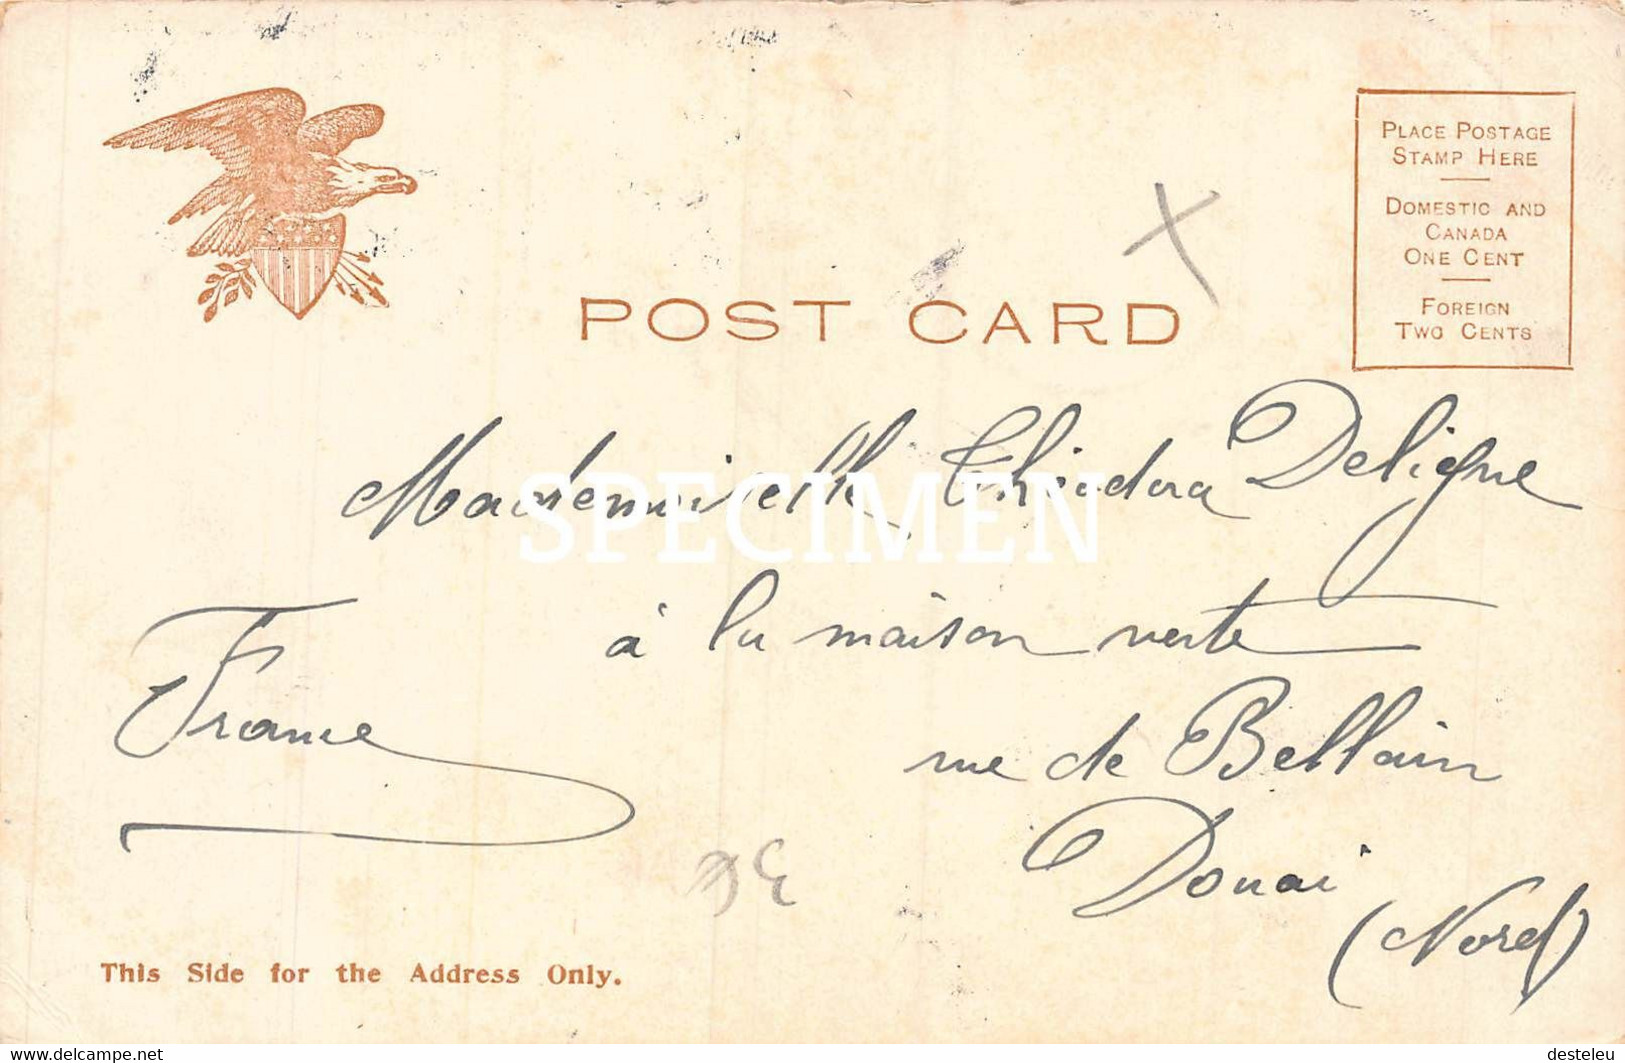 PLACE POSTAGE
STAMP HERE
DOMESTIC AND
CANADA
ONE CENT
FOREIGN
TWO CENTS
POST CARD
Mademoiselle Théodora Deligne
SPECIMEN
à la maison verte
France
rue de Bellain
Douai
(Nord)
This Side for the Address Only.
https://www.delcampe.net
desteleu